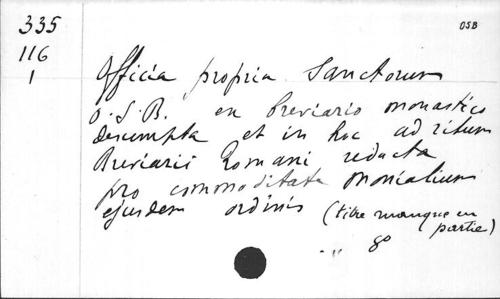 335
116
1
OSB
Officia propria Sanctorum
O.S.B. ex breviario monastico
descumpta et in hoc ad ritum
Breviarii Romani redacta
pro commoditate monialium
ejusdem ordinis (titre manque en
partie)
8o